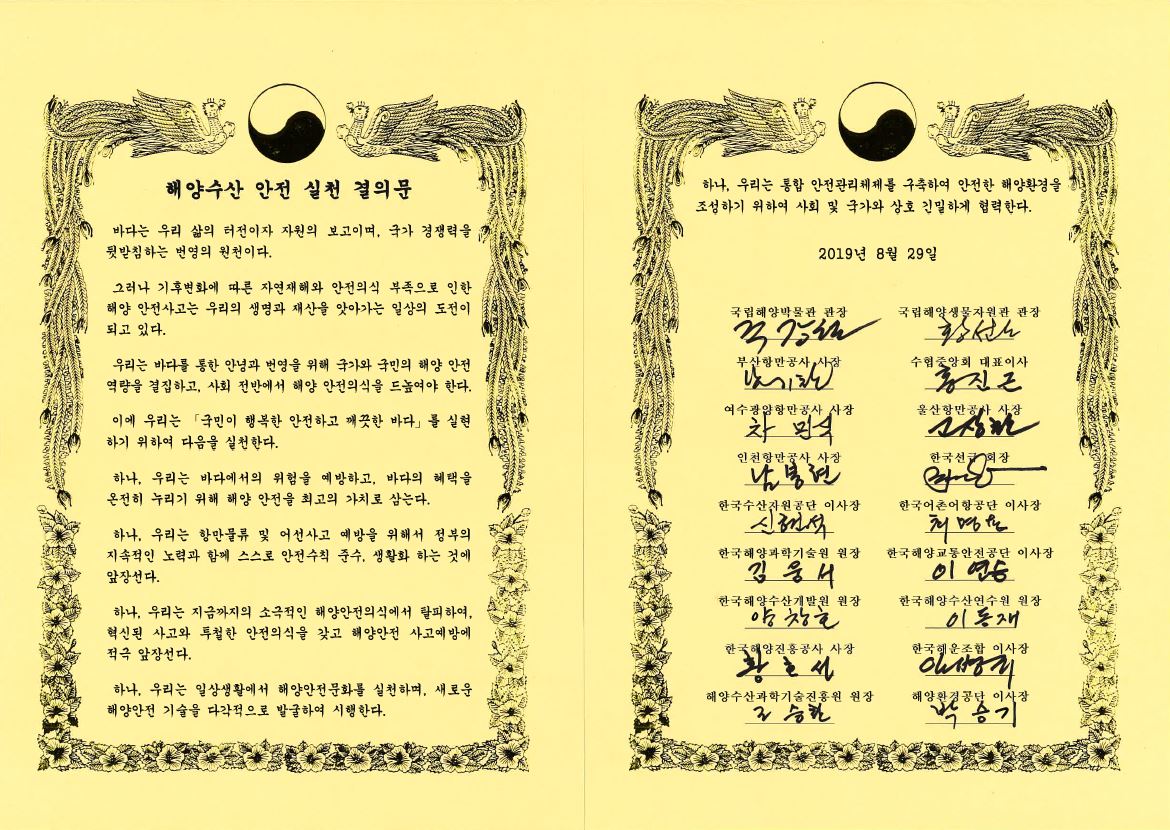 해양수산 안전 실천 결의문
바다는 우리 삶의 터전이자 자원의 보고이며, 국가 경쟁력을
뒷받침하는 번영의 원천이다.
그러나 기후변화에 따른 자연재해와 안전의식 부족으로 인한
해양 안전사고는 우리의 생명과 재산을 앗아가는 일상의 도전이
되고 있다.
우리는 바다를 통한 안녕과 번영을 위해 국가와 국민의 해양 안전
역량을 결집하고, 사회 전반에서 해양 안전의식을 드높여야 한다.
이에 우리는 「국민이 행복한 안전하고 깨끗한 바다」를 실현
하기 위하여 다음을 실천한다.
하나, 우리는 바다에서의 위험을 예방하고, 바다의 혜택을
온전히 누리기 위해 해양 안전을 최고의 가치로 삼는다.
하나, 우리는 항만물류 및 어선사고 예방을 위해서 정부의
지속적인 노력과 함께 스스로 안전수칙 준수, 생활화 하는 것에
앞장선다.
하나, 우리는 지금까지의 소극적인 해양안전의식에서 탈피하여,
혁신된 사고와 투철한 안전의식을 갖고 해양안전 사고예방에
적극 앞장선다.
하나, 우리는 일상생활에서 해양안전문화를 실천하며, 새로운
해양안전 기술을 다각적으로 발굴하여 시행한다.
하나, 우리는 통합 안전관리체제를 구축하여 안전한 해양환경을
조성하기 위하여 사회 및 국가와 상호 긴밀하게 협력한다.
2019년 8월 29일
국립해양박물관 관장 국립해양생물자원관 관장
황선도
부산항만공사 사장 수협중앙회 대표이사
남기찬 홍진근
여수광양항만공사 사장 울산항만공사 사장
차민식 고상환
인천항만공사 사장 한국선급 회장
남봉현
한국수산자원공단 이사장 한국어촌어항공단 이사장
신현석 최명용
한국해양과학기술원 원장 한국해양교통안전공단 이사장
김웅서 이연승
한국해양수산개발원 원장 한국해양수산연수원 원장
양창호 이동재
한국해양진흥공사 사장 한국해운조합 이사장
황호선
해양수산과학기술진흥원 원장 해양환경공단 이사장
조승환 박승기